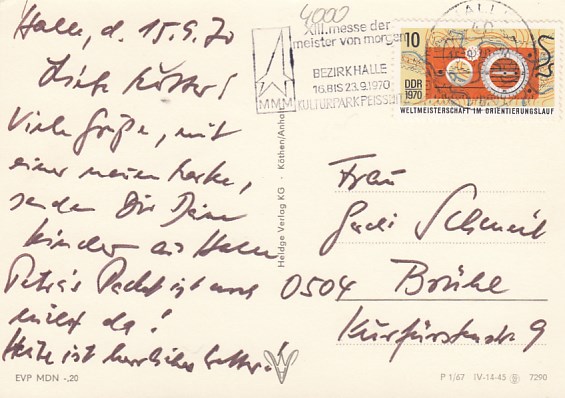 Halle, d. 15.9.70
Liebe Mutter!
Viele Grüße, mit
einer neuen Karte,
senden Dir Deine
Kinder aus Halle
Petra's Packet ist noch
nicht da!
Heute ist herrliches Wetter!
EVP MDN -,20
4000
XIII. messe der
meister von morgen
BEZIRK HALLE
16.BIS 23.9.1970
KULTURPARK PEISSNITZ
MMM
HALLE
40
10
DDR
1970
WELTMEISTERSCHAFT IM ORIENTIERUNGSLAUF
Heldge Verlag KG · Köthen/Anhalt
Frau
Schmeil
0504 Brühl
Kurfürstenstr 9
P 1/67 IV-14-45 7290